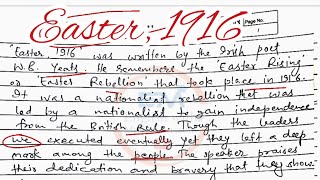 Easter, 1916
Page No.
"Easter 1916" was written by the Irish poet
W.B. Yeats. He remembers the 'Easter Rising'
or 'Easter Rebellion' that took place in 1916.
It was a nationalist rebellion that was
led by a nationalist to gain independence
from the British Rule. Though the leaders
were executed eventually yet they left a deep
mark among the people. The speaker praises
their dedication and bravery that they show